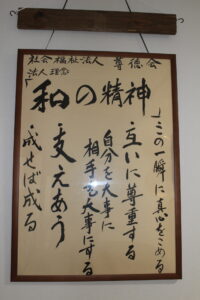 社会福祉法人 尊徳会
法人理念
「和の精神」
この一瞬に真心をこめる
互いに尊重する
自分を大事に
相手を大事にする
支えあう
成せば成る